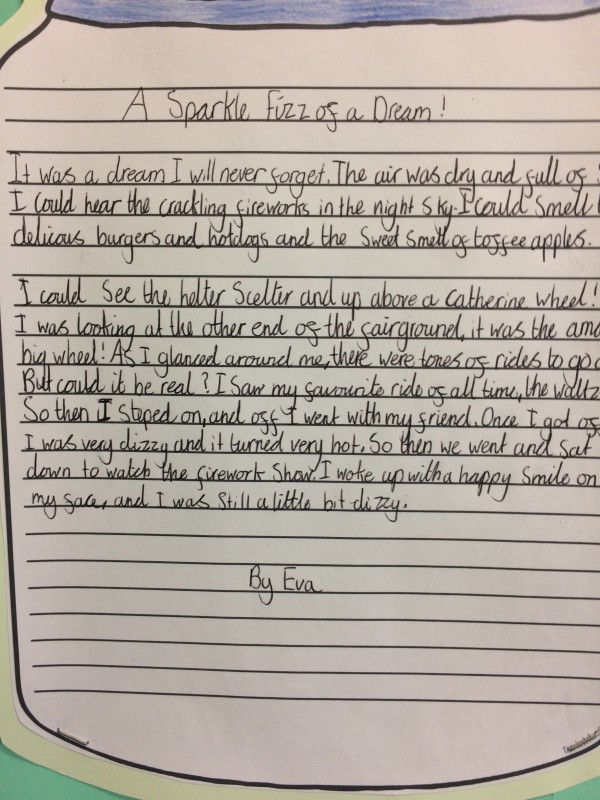 A Sparkle Fizz of a Dream!
It was a dream I will never forget. The air was dry and full of
I could hear the crackling fireworks in the night sky. I could smell
delicous burgers and hotdogs and the sweet smell of toffee apples.
I could see the helter Scelter and up above a Catherine wheel!
I was looking at the other end of the fairground, it was the
big wheel! As I glanced around me, there were tones of rides to go
But could it be real? I saw my favourite ride of all time, the
So then I steped on, and off I went with my friend. Once I got
I was very dizzy and it turned very hot. So then we went and sat
down to watch the firework show. I woke up with a happy smile on
my face, and I was still a little bit dizzy.
By Eva